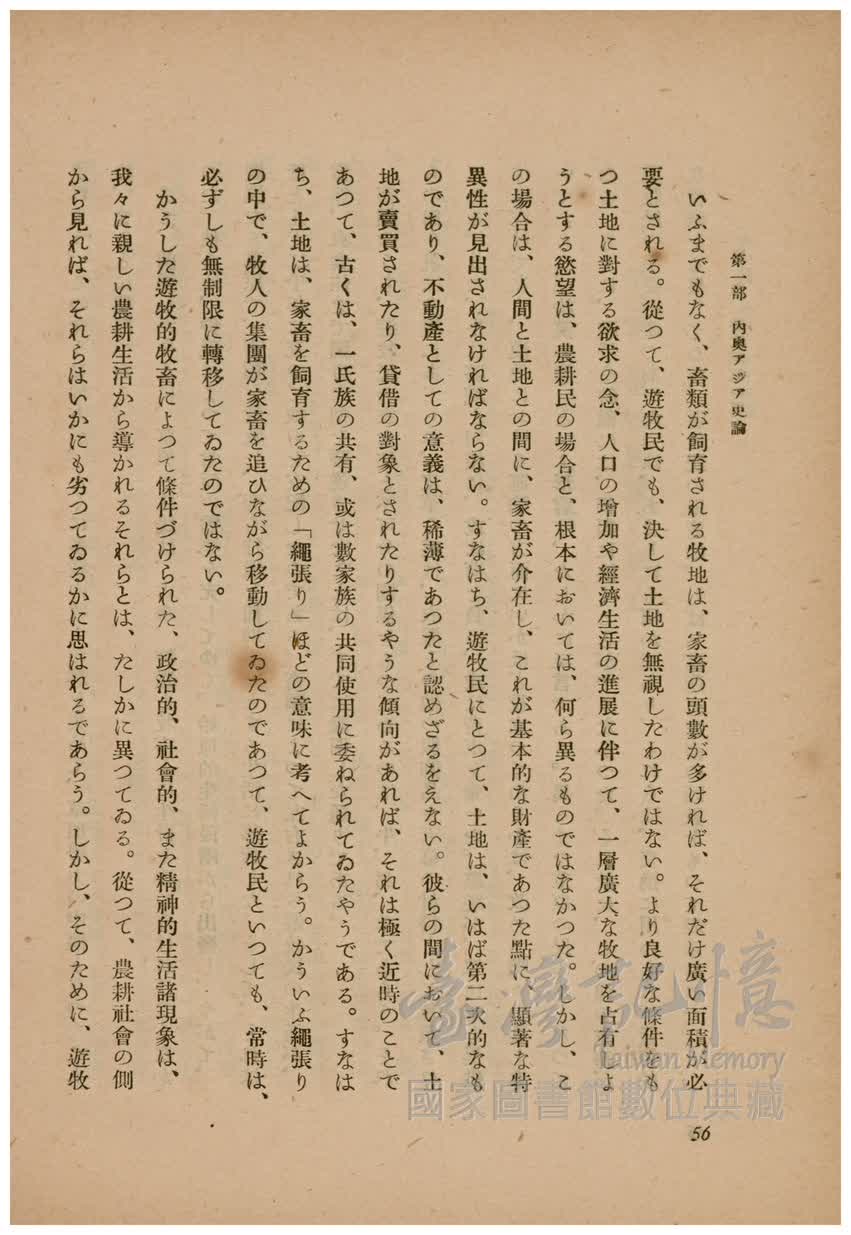 第一部　內奥アジア史論
いふまでもなく、畜類が飼育される牧地は、家畜の頭數が多ければ、それだけ廣い面積が必
要とされる。從つて、遊牧民でも、決して土地を無視したわけではない。より良好な條件をも
つ土地に對する欲求の念、人口の增加や經濟生活の進展に伴つて、一層廣大な牧地を占有しよ
うとする慾望は、農耕民の場合と、根本においては、何ら異るものではなかつた。しかし、こ
の場合は、人間と土地との間に、家畜が介在し、これが基本的な財產であつた點に、顯著な特
異性が見出されなければならない。すなはち、遊牧民にとつて、土地は、いはば第二次的なも
のであり、不動產としての意義は、稀薄であつたと認めざるをえない。彼らの間において、土
地が賣買されたり、貸借の對象とされたりするやうな傾向があれば、それは極く近時のことで
あつて、古くは、一氏族の共有、或は數家族の共同使用に委ねられてゐたやうである。すなは
ち、土地は、家畜を飼育するための「繩張り」ほどの意味に考へてよからう。かういふ繩張り
の中で、牧人の集團が家畜を追ひながら移動してゐたのであつて、遊牧民といつても、常時は、
必ずしも無制限に轉移してゐたのではない。
かうした遊牧的牧畜によつて條件づけられた、政治的、社會的、また精神的生活諸現象は、
我々に親しい農耕生活から導かれるそれらとは、たしかに異つてゐる。從つて、農耕社會の側
から見れば、それらはいかにも劣つてゐるかに思はれるであらう。しかし、そのために、遊牧
56
臺灣記憶
Taiwan Memory
國家圖書館數位典藏